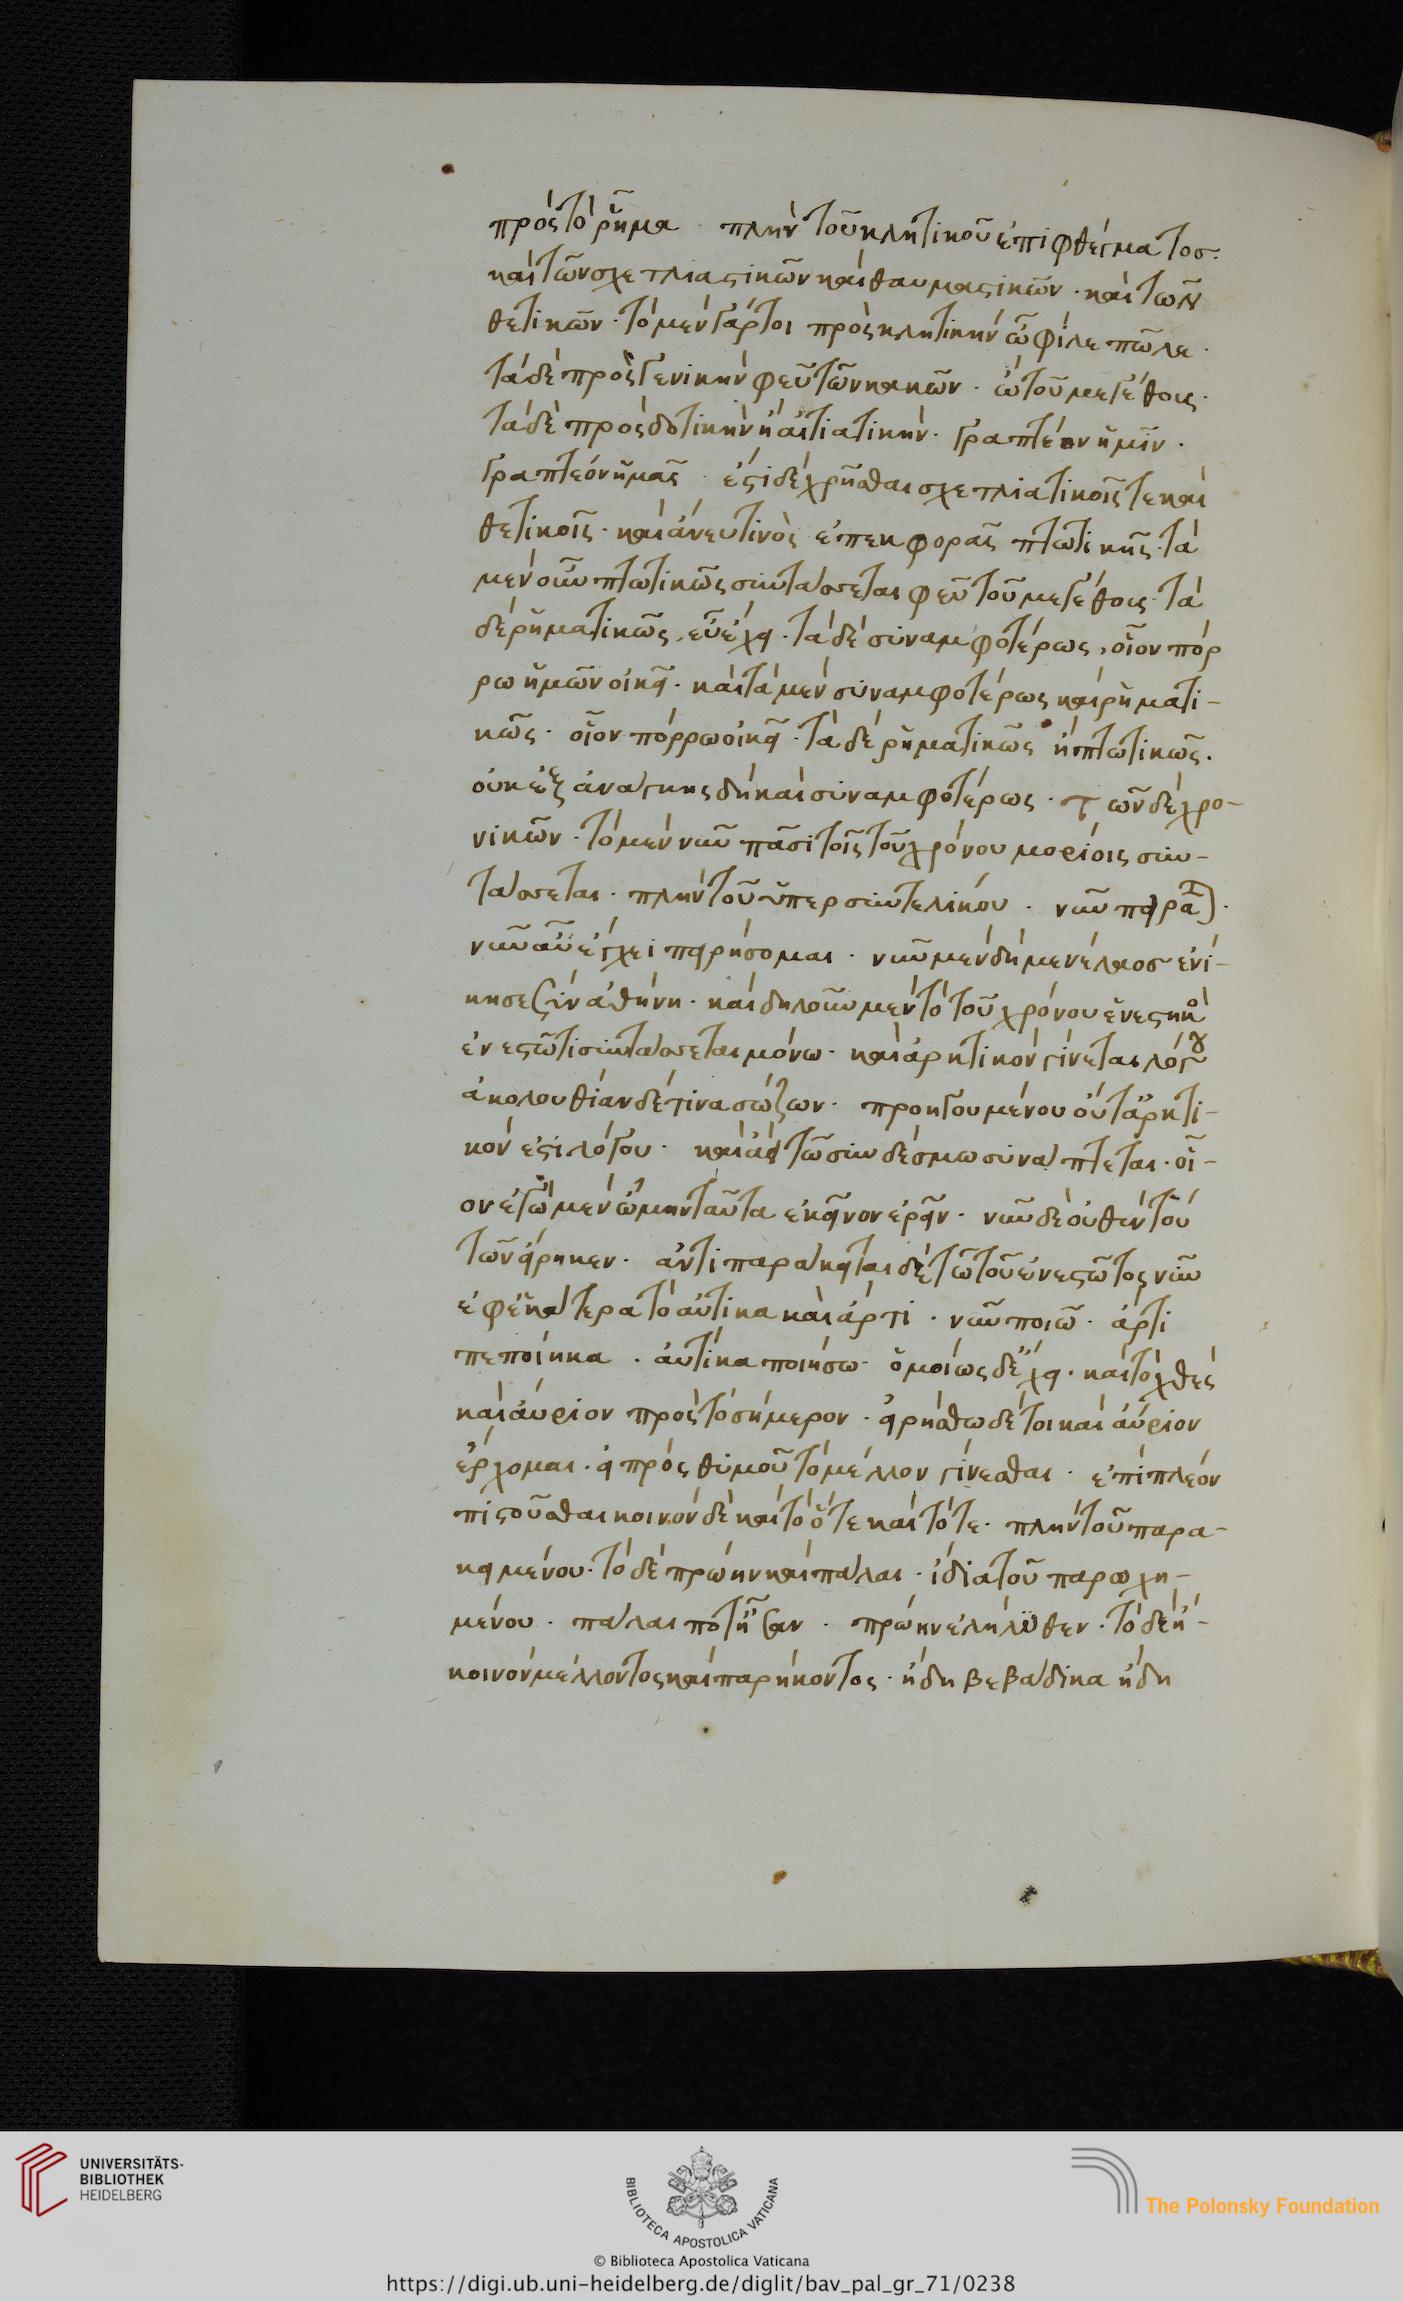 πρὸς τὸ ρῆμα · πλὴν τοῦ κλητικοῦ ἐπιφθέγματος ·
καὶ τῶν σχετλιαστικῶν καὶ θαυμαστικῶν · καὶ τῶν
θετικῶν · τὸ μὲν γάρτοι πρὸς κλητικὴν ὦ φίλε πῶλε ·
τὰ δὲ πρὸς γενικὴν φεῦ τῶν κακῶν · ὢ τοῦ μεγέθους ·
τὰ δὲ πρὸς δοτικὴν ἢ αἰτιατικήν · γραπτέον ἡμῖν ·
γραπτέον ἡμᾶς · ἔστι δὲ χρῆσθαι σχετλιατικοῖς τε καὶ
θετικοῖς · καὶ ἄνευ τινὸς ἐπεκφορᾶς πτωτικῆς · τὰ
μὲν οὖν πτωτικῶς συντάσσεται φεῦ τοῦ μεγέθους · τὰ
δὲ ρηματικῶς, εὖ ἔχει · τὰ δὲ συναμφοτέρως, οἷον πόρ
ρω ἡμῶν οἰκεῖ · καὶ τὰ μὲν συναμφοτέρως καὶ ρηματι-
κῶς · οἷον πόρρω οἰκεῖ · τὰ δὲ ρηματικῶς ἢ πτωτικῶς ·
οὐκ ἐξ ἀνάγκης δὴ καὶ συναμφοτέρως · τῶν δὲ χρο-
νικῶν · τὸ μὲν νῦν πᾶσι τοῖς τοῦ χρόνου μορίοις συν-
τάσσεται · πλὴν τοῦ ὑπερσυντελίκου · νῦν
νῦν αὖ ἔγχει πειρήσομαι · νῦν μὲν δὴ μενέλαος ἐνί-
κησε σὺν ἀθήνη · καὶ δηλοῦν μὲν τὸ τοῦ χρόνου ἐνεστηκὸς
ἐνεστῶτι συντάσσεται μόνω · καὶ ἀρκτικὸν γίνεται λόγου
ἀκολουθίαν δέ τινα σώζων · προηγουμένου οὔτ ἀρκτι-
κόν ἐστι λόγου · καὶ ἀεὶ τῶ συνδέσμω συνάπτεται · οἷ-
ον ἐγὼ μὲν ὤμην ταῦτα ἐκεῖνον ἐρεῖν · νῦν δὲ οὐθὲν τού
των εἴρηκεν · ἀντιπαράκειται δὲ τῶ τοῦ ἐνεστῶτος νῦν
ἐφ ἑκάτερα τὸ αὐτίκα καὶ ἄρτι · νῦν ποιῶ · ἄρτι
πεποίηκα · αὐτίκα ποιήσω · ὁμοίως δὲ ἔχει · καὶ τὸ χθὲς
καὶ αὔριον πρὸς τὸ σήμερον · εἰρήσθω δέ τοι καὶ αὔριον
ἔρχομαι · εἰ πρὸς θυμοῦ τὸ μέλλον γίνεσθαι · ἐπὶ πλέον
πιστοῦσθαι κοινὸν δὲ καὶ τὸ ὅτε καὶ τότε · πλὴν τοῦ παρα-
κειμένου · τὸ δὲ πρώην καὶ πάλαι · ἴδια τοῦ παρωχη-
μένου · πάλαι ποτ ἦσαν · πρώην ἐλήλυθεν · τὸ δὲ ἤ-
κοινὸν μέλλοντος καὶ παρήκοντος · ἤδη βεβάδικα ἤδη
UNIVERSITÄTS-
BIBLIOTHEK
HEIDELBERG
BIBLIOTECA APOSTOLICA VATICANA
© Biblioteca Apostolica Vaticana
The Polonsky Foundation
https://digi.ub.uni-heidelberg.de/diglit/bav_pal_gr_71/0238